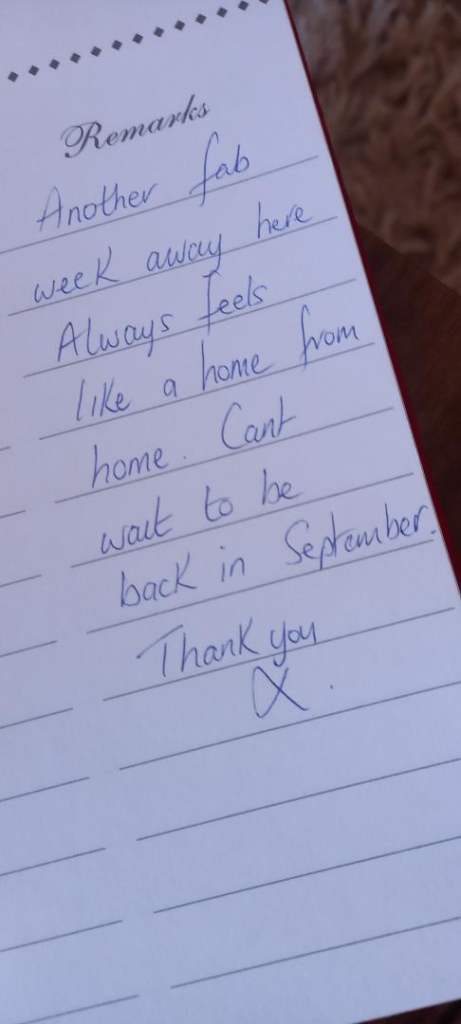 Remarks
Another fab
week away here
Always feels
like a home from
home. Cant
wait to be
back in September.
Thank you
X.